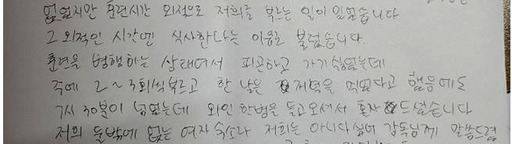 없었지만 훈련시간 외적으로 저희를 부르는 일이 있었습니다
그 외적인 시간엔 식사한다는 이유로 불렀습니다
훈련을 병행하는 상태여서 피곤하고 가기 싫었는데
주에 2~3회씩 부르고 한 날은 저녁을 먹었다고 했음에도
7시 30분이 넘었는데 와인 한병을 들고 오셔서 혼자 드셨습니다
저희 둘밖에 없는 여자 숙소라 저희는 아니다 싶어 감독님께 말씀드렸